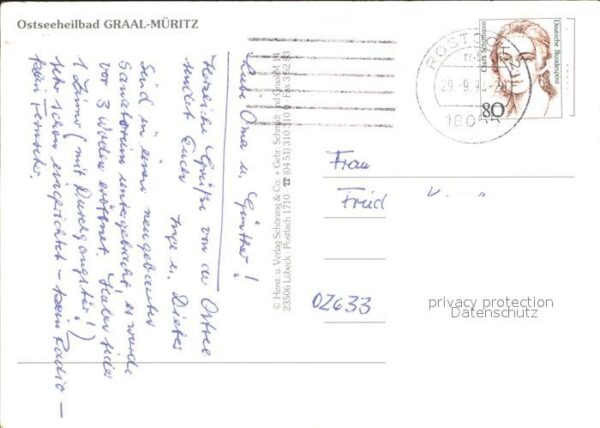 Ostseeheilbad GRAAL-MÜRITZ
Liebe Oma u. Günther!
Herzliche Grüße von der Ostsee
sendet Euch Inge u. Dieter
Sind in einem neugebauten
Sanatorium untergebracht, es wurde
vor 3 Wochen eröffnet. Haben
1 Zimmer (mit Durchgangstür!)
sehr schön eingerichtet - kein Radio -
kein Fernseh.
© Herst. u. Verlag Schöning & Co. + Gebr. Schmidt
23506 Lübeck · Postfach 1710 · ☎ (04 51) 310 310
ROSTOCK
29.-9.
80
Deutsche Bundespost
Frau
Frieda
02633
privacy protection
Datenschutz